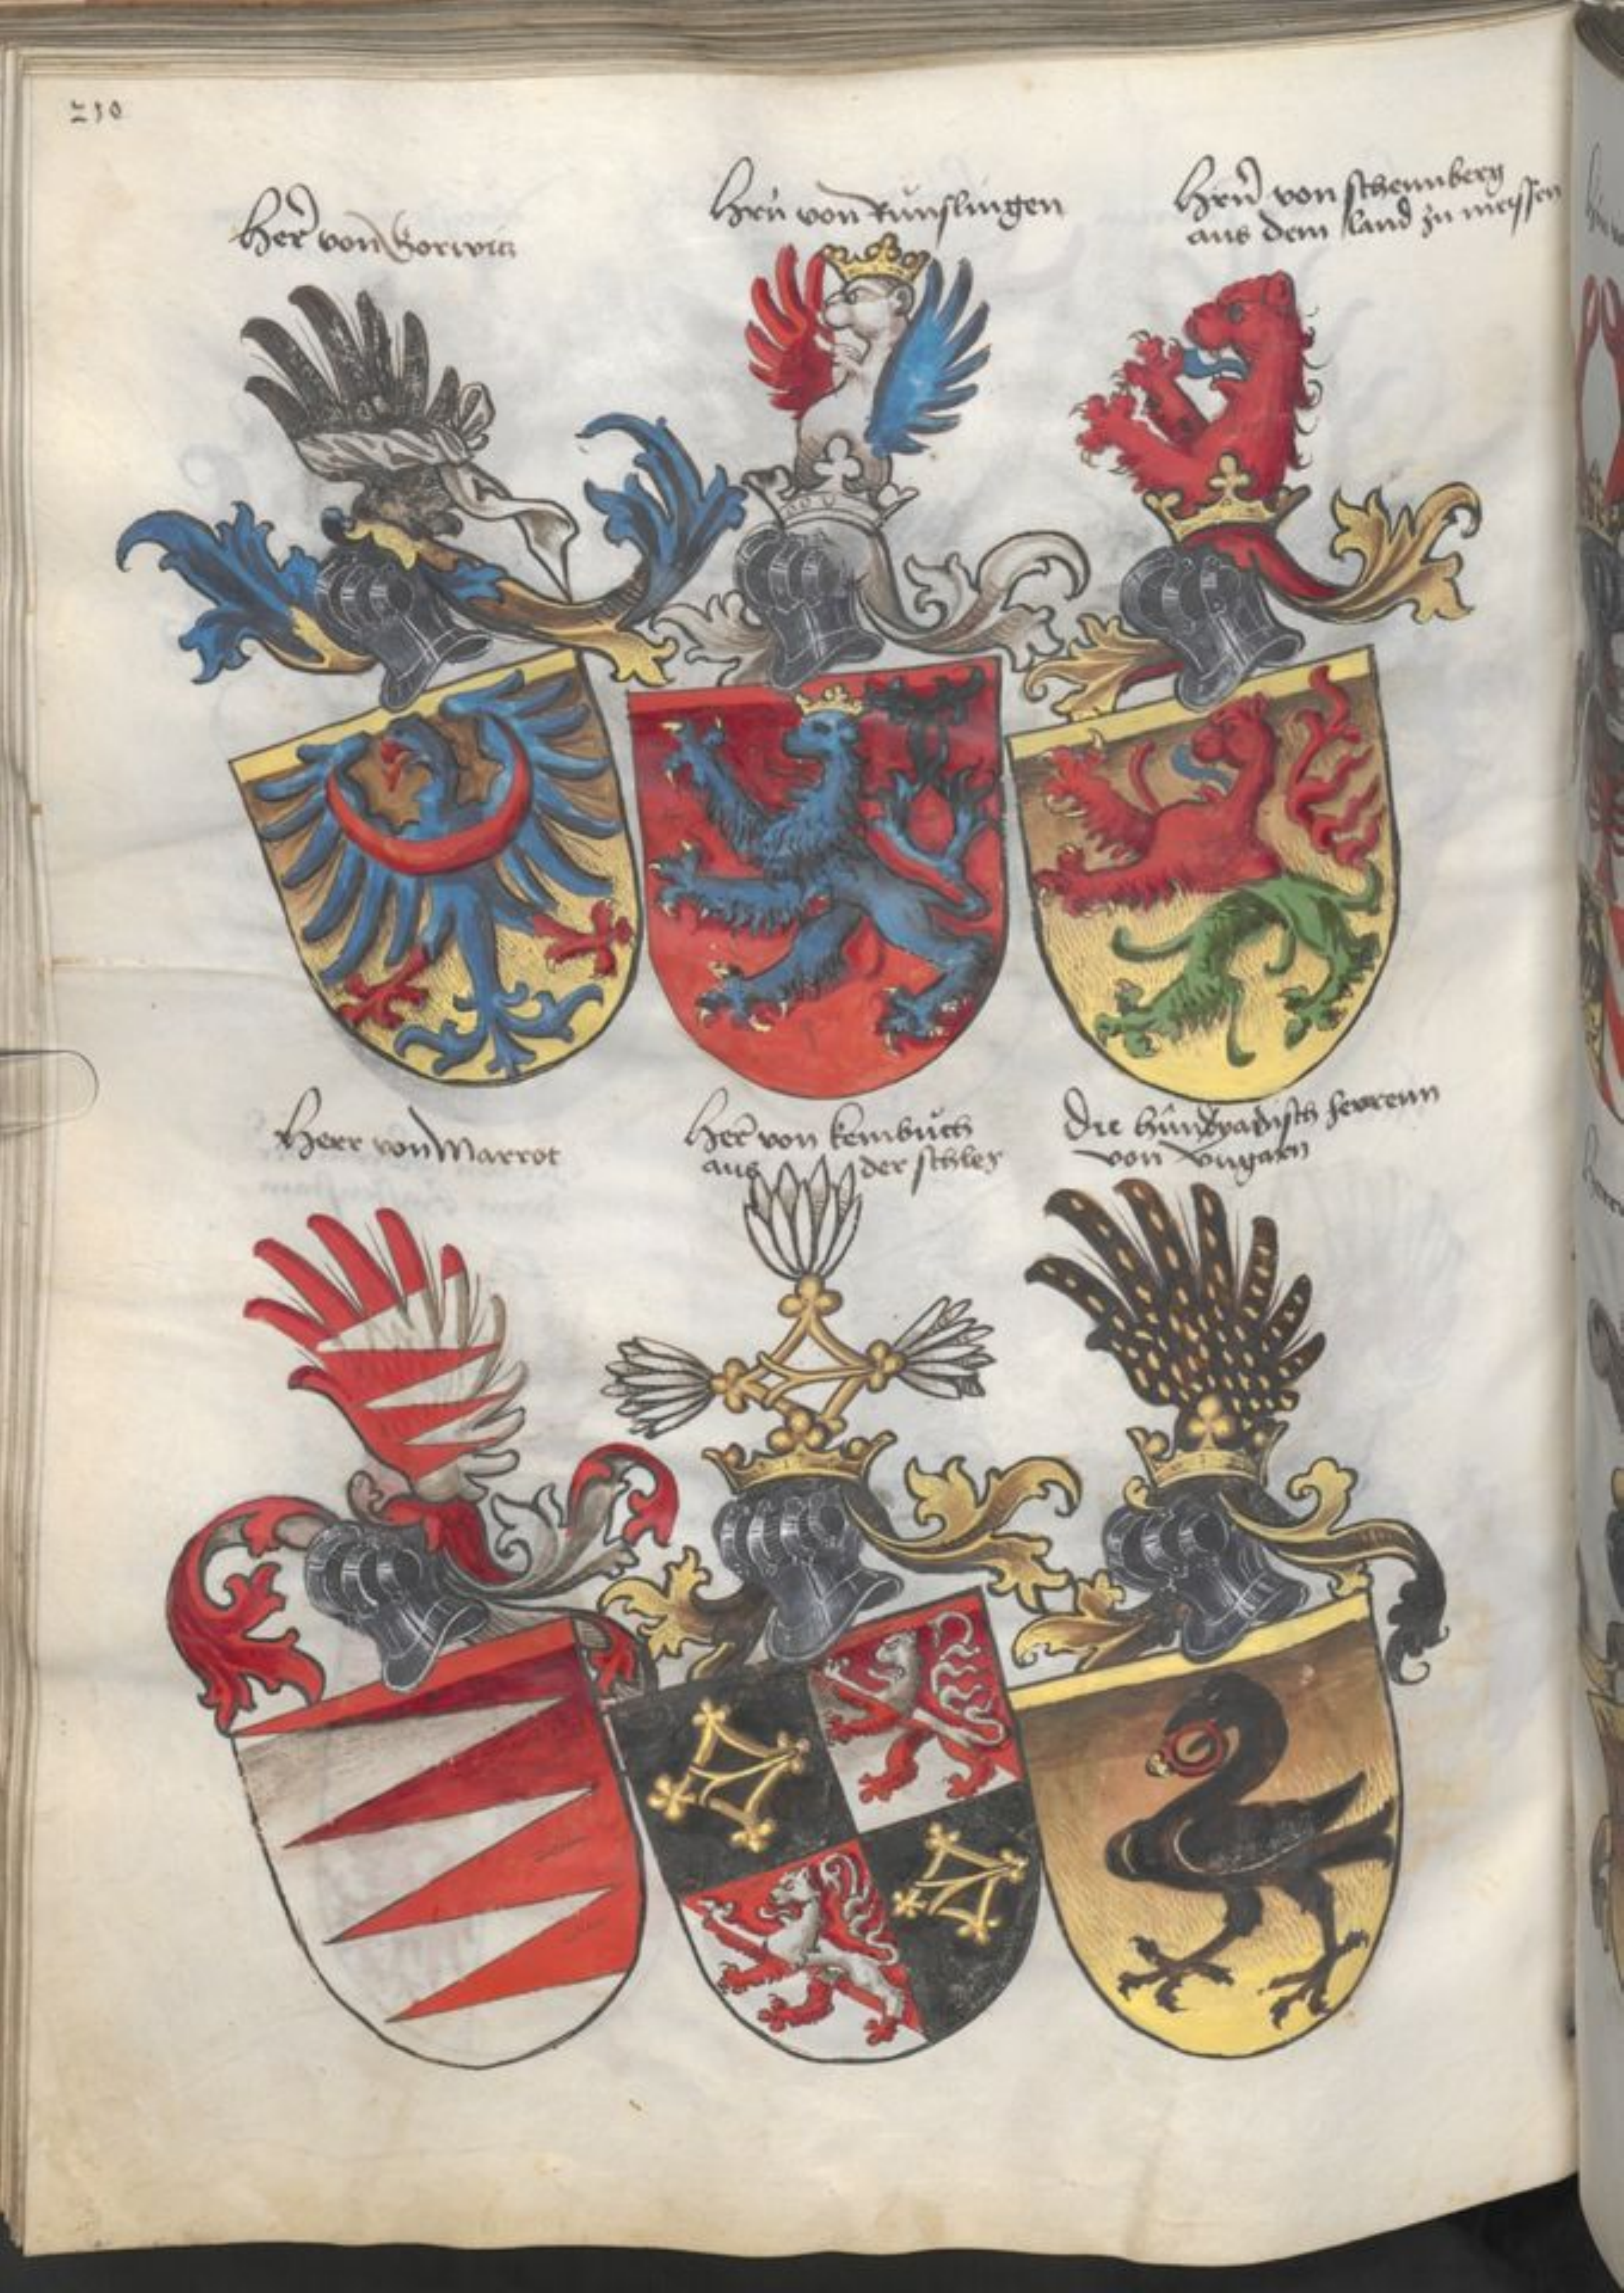 210
Her von Gorwitz
Hern von kunslingen
Hern von schennberg
aus dem land zu meissen
Herr von Marrot
Her von kembuch
aus der schlesy
Die hundyadisch herrenn
von vngarn